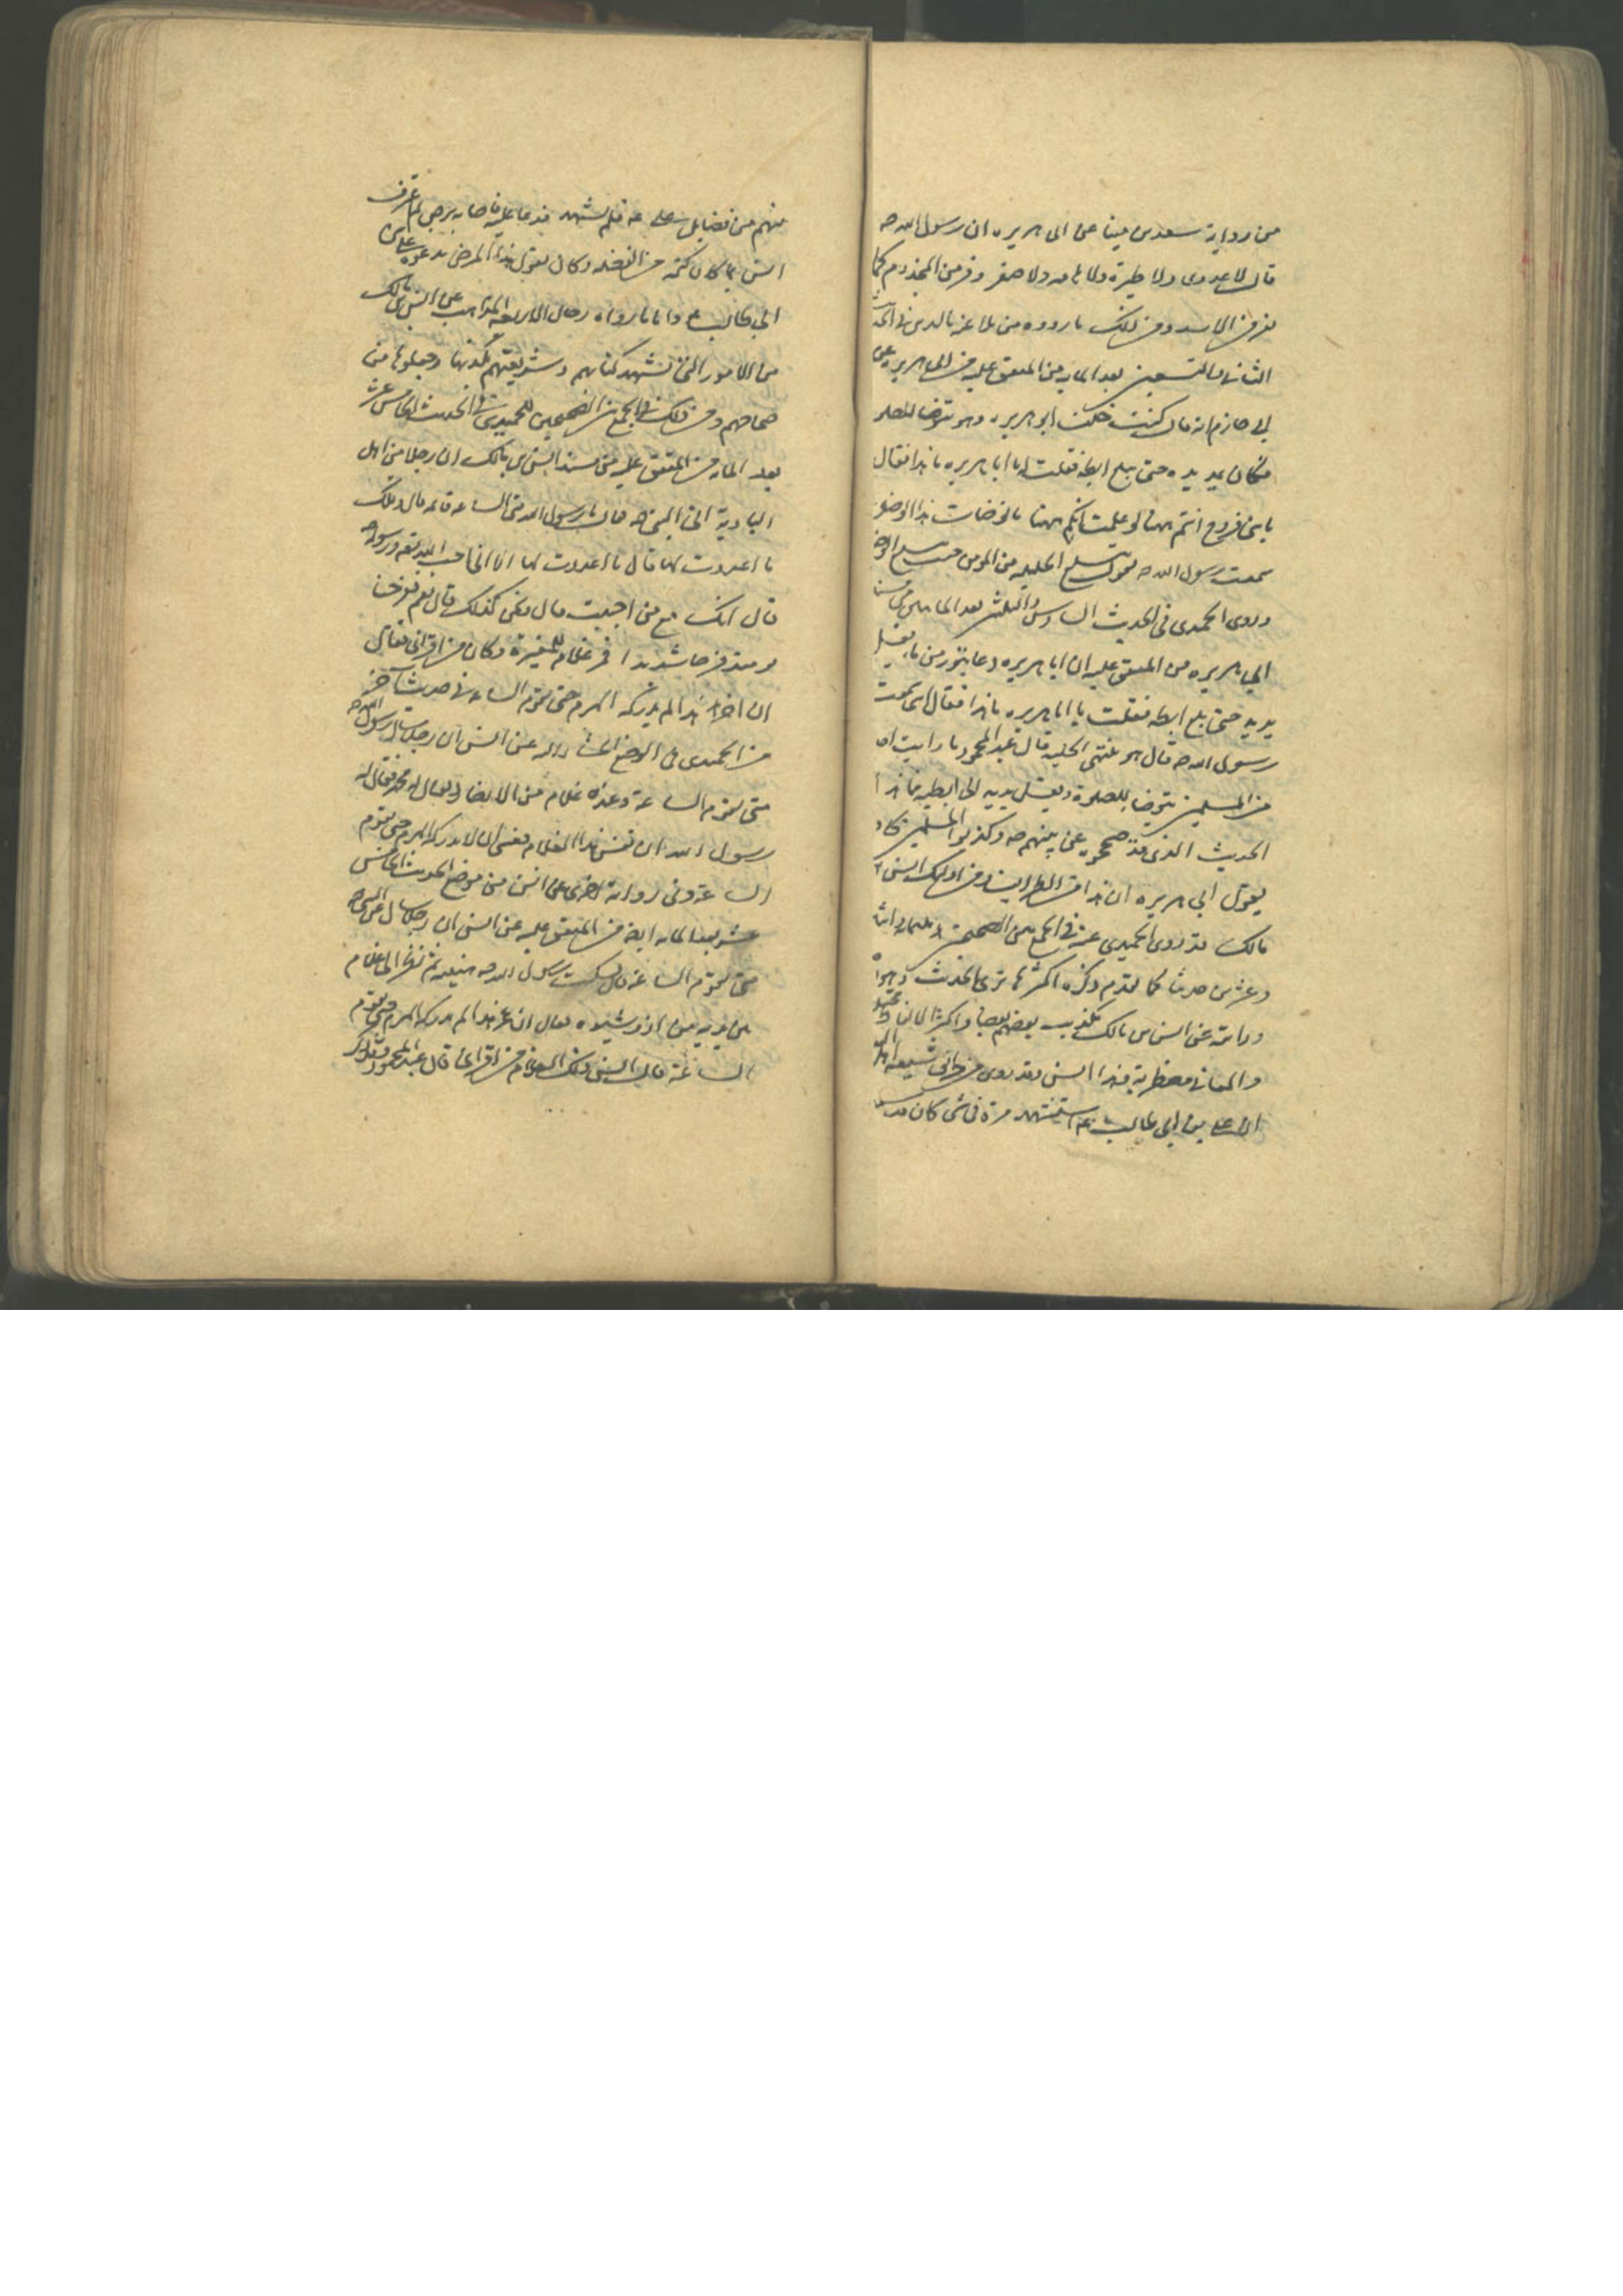 من رواية سعد بن مينا عن ابى هريره ان رسول الله ص
قال لا عدوى ولا طيرة ولا هامه ولا صفر وفر من المجذوم كما
تفر من الاسد ومن ذلك ما رووه من بلاغه بالدين فى الحديث
الثانى والتسعين بعد المايه من المتفق عليه من ابى هريره عن
ابى حازم انه قال كنت خلف ابو هريره وهو يتوضا للصلوة
فكان يمد يده حتى يبلغ ابطه فقلت له يا ابا هريره ما هذا فقال
يا بنى فروخ انتم ههنا لو علمت انكم ههنا ما توضات هذا الوضو
سمعت رسول الله ص يقول تبلغ الحليه من المومن حيث يبلغ الوضو
وروى الحميدى فى الحديث السادس والثلثين بعد المايه من مسند
ابى هريره من المتفق عليه ان ابا هريره دعا بتور من ما فغسل
يديه حتى بلغ ابطه فقلت يا ابا هريره ما هذا فقال انى سمعت
رسول الله ص قال هو منتهى الحليه قال عبد المحمود ما رايت احدا
من المسلمين يتوضا للصلوة ويغسل يديه الى ابطيه فما هذا
الحديث الذى قد صححوه عن نبيهم ص وكذبوا المسلمين فكاد
يقول ابى هريره ان هذا من الطرايف ومن اولئك انس بن
مالك قد روى الحميدى عنه فى الجمع بين الصحيحين ثلثمايه واثنا
وعشرين حديثا كما تقدم ذكره اكثرها ترى الحديث
ورايته عن انس بن مالك يكذب بعضهم بعضا واكثر الفاظ
والمعانى مضطربة فهذا انس وقد روى من شيعه اهل
ان على بن ابى طالب ع استشهد مرة فى شى كان قد
منهم من فضايل على ع فلم يشهد فدعا عليه فاصابه برص لم
انس بما كان كتمه من الفضله وكان يقول هذا المرض بدعوه على بن
ابى طالب ع واما ما رواه رجال الاربعه المذاهب عن انس بن مالك
من الامور التى تشهد كتابهم وشريعتهم بكذبها وجعلوها من
صحاحهم ومن ذلك فى الجمع بين الصحيحين للحميدى فى الحديث الخامس عشر
بعد المايه من المتفق عليه من مسند انس بن مالك ان رجلا من اهل
البادية اتى النبى ص فقال يا رسول الله متى الساعه قائمه قال ويلك
ما اعددت لها قال ما اعددت لها الا انى احب الله تعالى ورسوله
قال انك مع من احببت قال ونحن كذلك قال نعم ففرحنا
يومئذ فرحا شديدا فمر غلام للمغيرة وكان من اقرانى فقال
ان اخر هذا لم يدركه الهرم حتى تقوم الساعه فى حديث آخر
من الحميدى فى الموضع المشار اليه عن انس ان رجلا سال رسول الله ص
متى تقوم الساعة وعنده غلام من الانصار يقال له محمد فقال له
رسول الله ان يعش هذا الغلام فعسى ان لا يدركه الهرم حتى تقوم
الساعة وفى رواية اخرى عن انس من موضع الحديث الخامس
عشر بعد المايه ايضا من المتفق عليه عن انس ان رجلا سال النبى ص
متى تقوم الساعة قال فسكت رسول الله ص هنيهة ثم نظر الى غلام
بين يديه من ازد شنوه فقال ان عمر هذا لم يدركه الهرم حتى تقوم
الساعة قال انس ذلك الغلام من اقرانى قال عبد المحمود